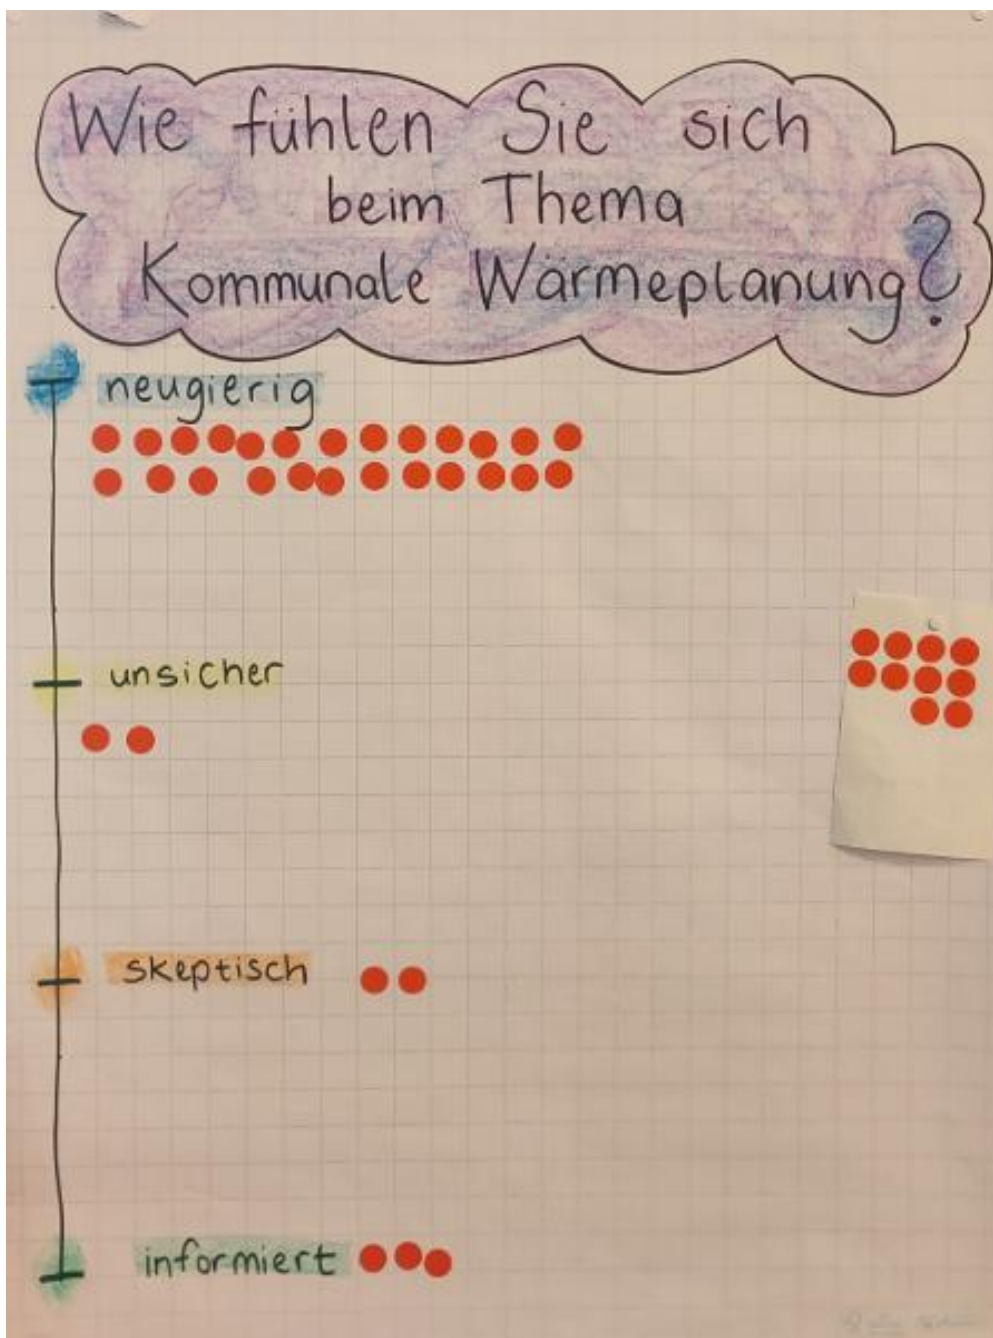 Wie fühlen Sie sich
beim Thema
Kommunale Wärmeplanung?
neugierig
unsicher
skeptisch
informiert